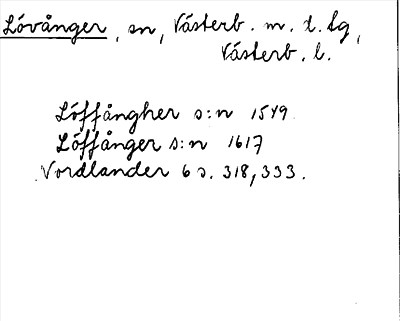 Lövånger, sn, Västerb. m. t. lg,
Västerb. l.
Löffångher s:n 1549
Löffånger s:n 1617
Nordlander 6 s. 318, 333.